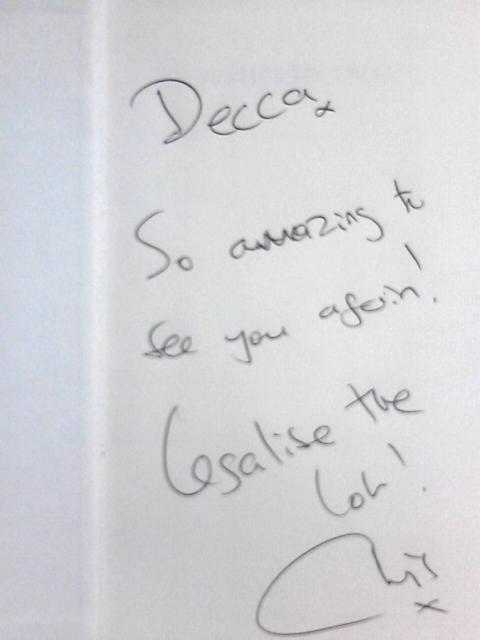 Decca x
So amazing to
see you again!
Legalise the
lot!
Chris
x